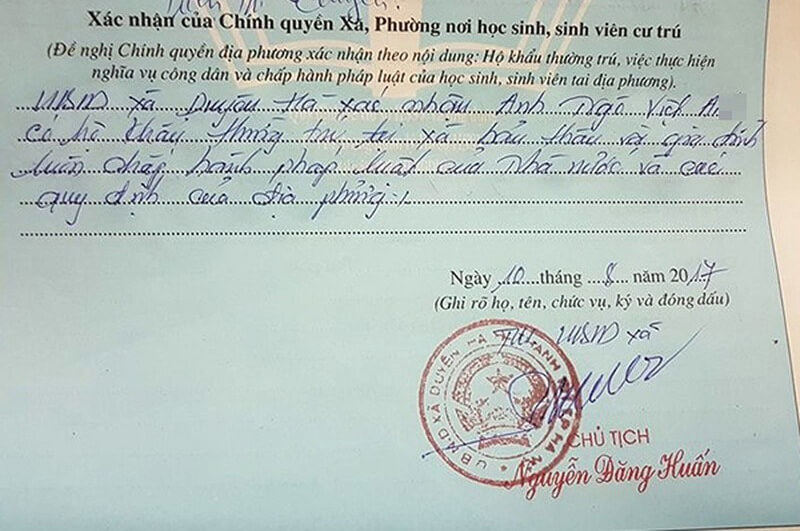 Xác nhận của Chính quyền Xã, Phường nơi học sinh, sinh viên cư trú
(Đề nghị Chính quyền địa phương xác nhận theo nội dung: Hộ khẩu thường trú, việc thực hiện
nghĩa vụ công dân và chấp hành pháp luật của học sinh, sinh viên tai địa phương).
UBND xã Duyên Hà xác nhận Anh Ngô Việt A
có hộ khẩu thường trú tại xã bản thân và gia đình
luôn chấp hành pháp luật của nhà nước và các
quy định của địa phương./.
Ngày 10 tháng 8 năm 2017
(Ghi rõ họ, tên, chức vụ, ký và đóng dấu)
TM UBND xã
UBND XÃ DUYÊN HÀ
CHỦ TỊCH
Nguyễn Đăng Huấn